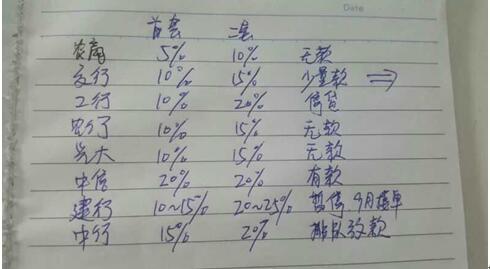 Date
首套 二套
农商 5% 10% 无款
交行 10% 15% 少量款 ⇒
工行 10% 20% 停贷
农行 10% 15% 无款
光大 10% 15% 无款
中信 20% 20% 有款
建行 10~15% 20~25% 暂停 9月接单
中行 15% 20% 排队放款